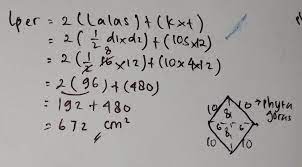 Lper = 2 (Lalas) + (k x t)
= 2 (1/2 d1xd2) + (10s x 12)
= 2 (1/2 16 8 x 12) + (10x4x12)
= 2 (96) + (480)
= 192 + 480
= 672 cm²
10 10 → Phyta
goras
8
6 6
8
10 10